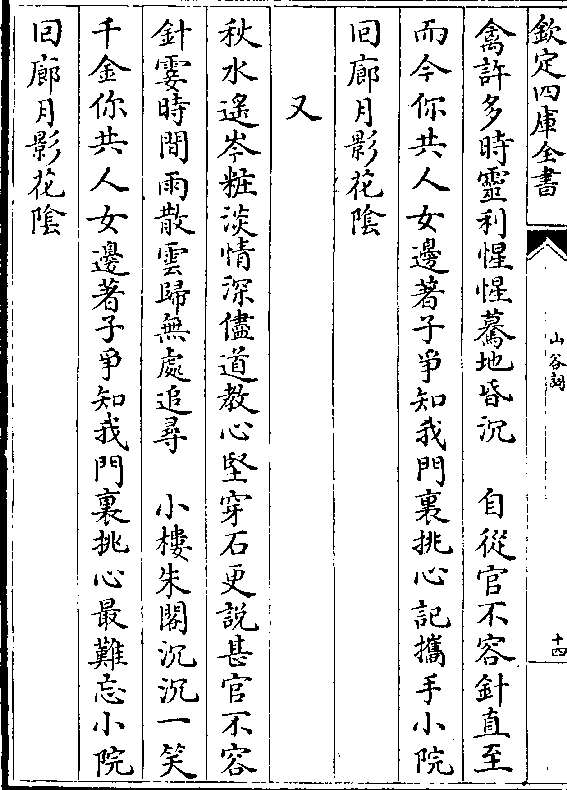 欽定四庫全書
山谷詞
十四
禽許多時靈利惺惺驀地昏沉　自從官不容針直至
而今你共人女邊著子爭知我門裏挑心記攜手小院
回廊月影花陰
又
秋水遙岑粧淡情深儘道教心堅穿石更說甚官不容
針霎時間雨散雲歸無處追尋　小樓朱閣沉沉一笑
千金你共人女邊著子爭知我門裏挑心最難忘小院
回廊月影花陰